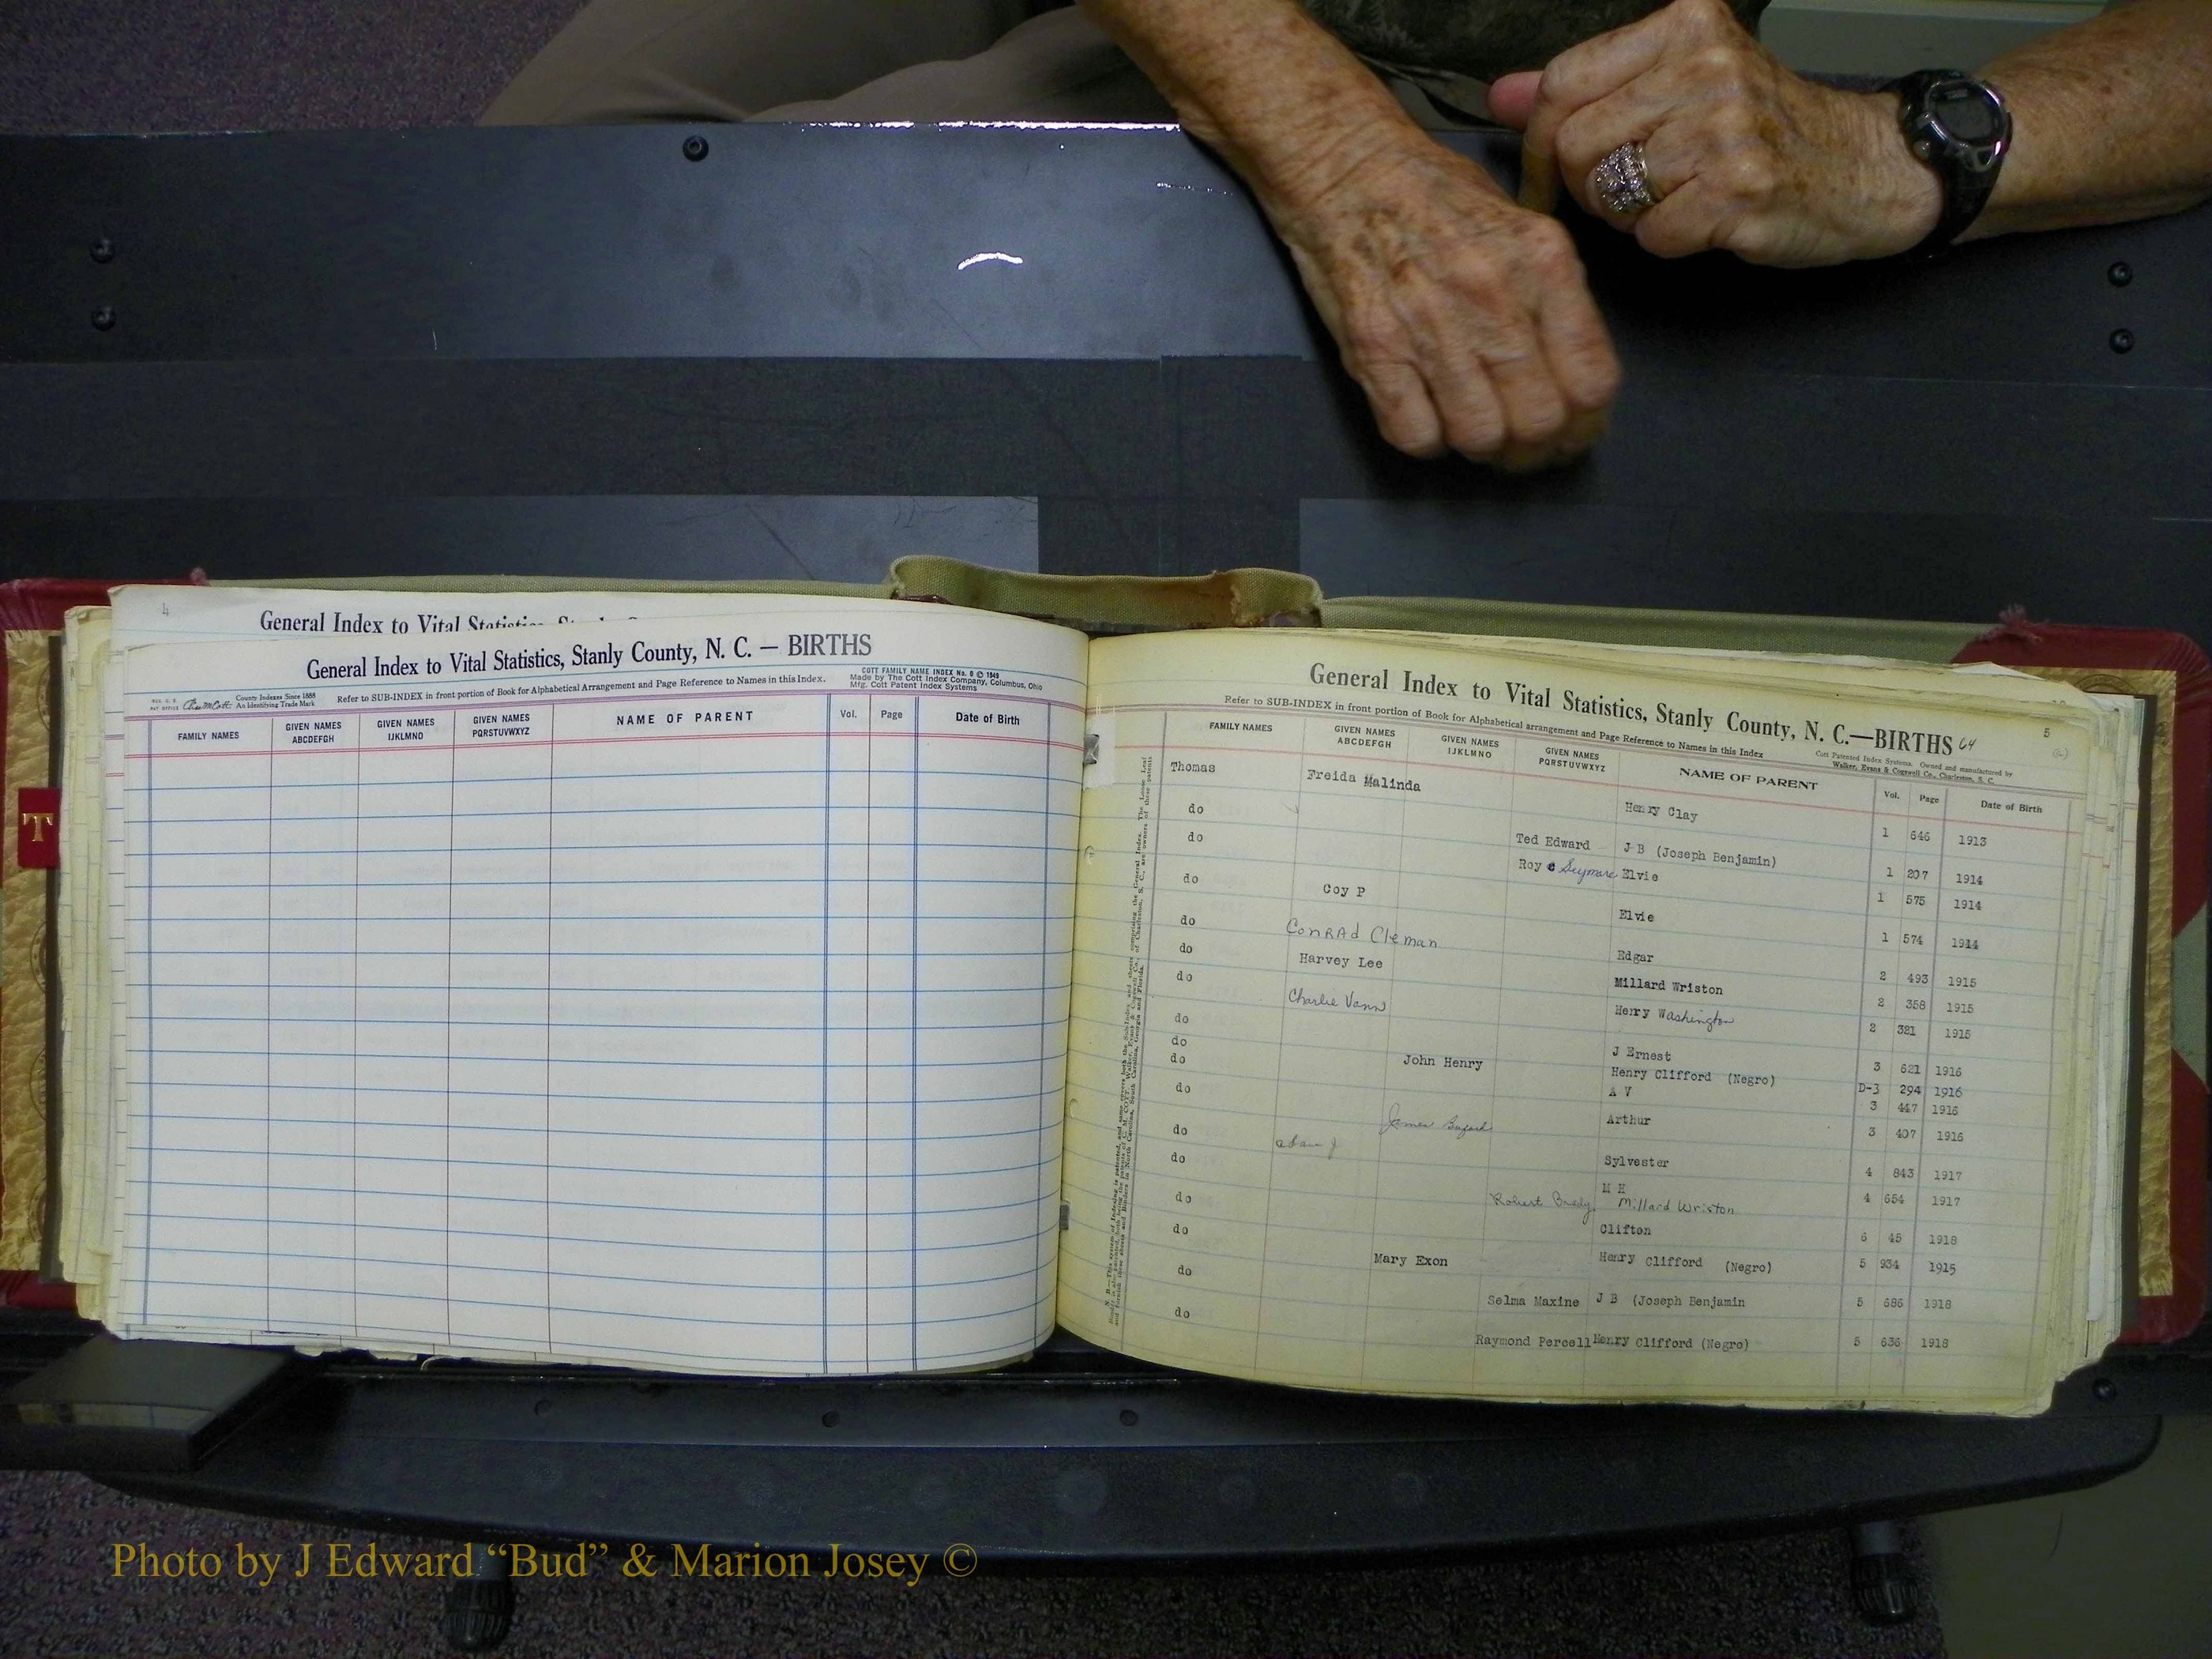 4
General Index to Vital Statistics, Stanly County, N. C. — BIRTHS
COTT FAMILY NAME INDEX No. 0 © 1949
Made by The Cott Index Company, Columbus, Ohio
Mfg. Cott Patent Index Systems
County Indexes Since 1888
An Identifying Trade Mark
Refer to SUB-INDEX in front portion of Book for Alphabetical Arrangement and Page Reference to Names in this Index.
FAMILY NAMES GIVEN NAMES ABCDEFGH GIVEN NAMES IJKLMNO GIVEN NAMES PQRSTUVWXYZ NAME OF PARENT Vol. Page Date of Birth
T
General Index to Vital Statistics, Stanly County, N. C.—BIRTHS 64
5
Refer to SUB-INDEX in front portion of Book for Alphabetical arrangement and Page Reference to Names in this Index
Cott Patented Index Systems. Owned and manufactured by
Walker, Evans & Cogswell Co., Charleston, S. C.
FAMILY NAMES GIVEN NAMES ABCDEFGH GIVEN NAMES IJKLMNO GIVEN NAMES PQRSTUVWXYZ NAME OF PARENT Vol. Page Date of Birth
Thomas Freida Malinda Henry Clay 1 646 1913
do Ted Edward J B (Joseph Benjamin) 1 207 1914
do Roy Seymore Elvie 1 575 1914
do Coy P Elvie 1 574 1914
do Conrad Cleman Edgar 2 493 1915
do Harvey Lee Millard Wriston 2 358 1915
do Charlie Vann Henry Washington 2 321 1915
do J Ernest 3 621 1916
do Henry Clifford (Negro) D-3 294 1916
do John Henry A V 3 447 1916
do Arthur 3 407 1916
do James Sylvester 4 843 1917
do Adam J M H Millard Wriston 4 654 1917
do Robert Clifton 6 45 1918
do Mary Exon Henry Clifford (Negro) 5 934 1915
do Selma Maxine J B (Joseph Benjamin 5 686 1918
do Raymond Percell Henry Clifford (Negro) 5 636 1918
Photo by J Edward “Bud” & Marion Josey ©